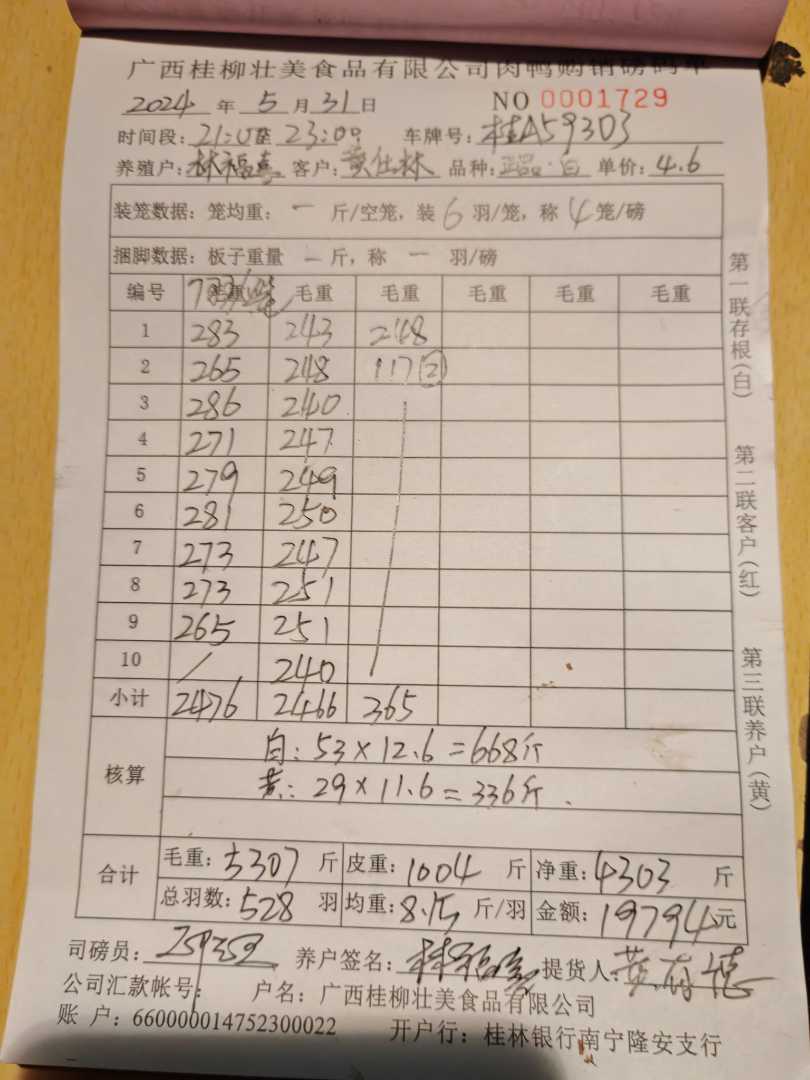 广西桂柳壮美食品有限公司肉鸭购销磅码单
2024 年 5 月 31 日 NO 0001729
时间段: 至 23:00 车牌号: 桂A59303
养殖户: 林福喜 客户: 黄仕林 品种: 单价: 4.6
装笼数据: 笼均重: 一 斤/空笼, 装 6 羽/笼, 称 4 笼/磅
捆脚数据: 板子重量 一 斤, 称 一 羽/磅
编号 毛重 毛重 毛重 毛重 毛重 毛重
1 283 243 248
2 265 248 117 ②
3 286 240
4 271 247
5 279 249
6 281 250
7 273 247
8 273 251
9 265 251
10 / 240
小计 2476 2466 365
核算
白: 53×12.6=668斤
黄: 29×11.6=336斤.
合计
毛重: 5307 斤 皮重: 1004 斤 净重: 4303 斤
总羽数: 528 羽 均重: 8.15 斤/羽 金额: 19794 元
司磅员: 养户签名: 林福喜 提货人: 黄 德
公司汇款帐号: 户名: 广西桂柳壮美食品有限公司
账 户: 660000014752300022 开户行: 桂林银行南宁隆安支行
第一联存根(白) 第二联客户(红) 第三联养户(黄)